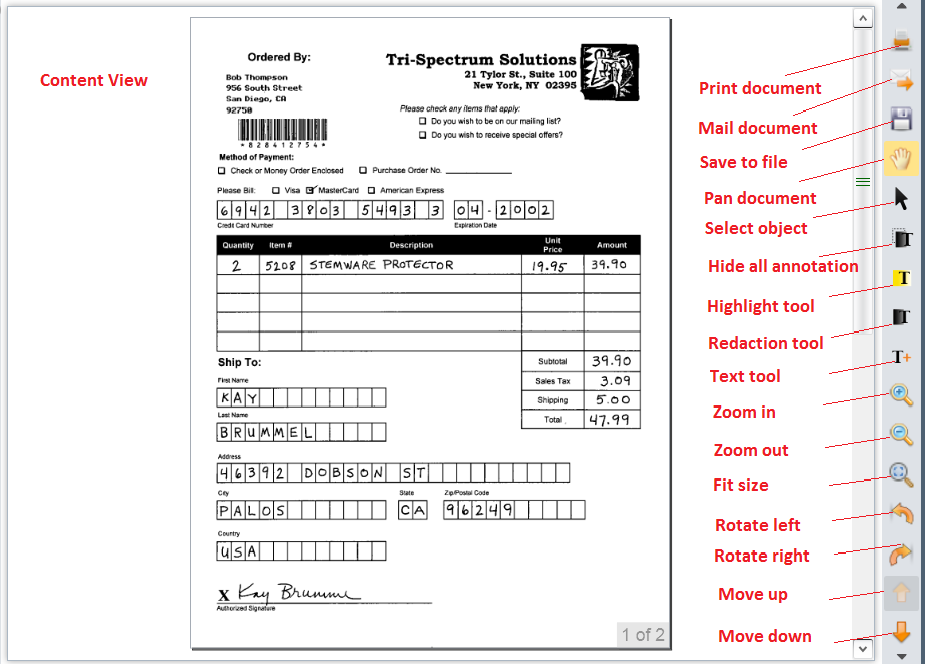 Content View
Ordered By:
Bob Thompson
956 South Street
San Diego, CA
92750
*828412754*
Tri-Spectrum Solutions
21 Tylor St., Suite 100
New York, NY 02395
Please check any items that apply:
Do you wish to be on our mailing list?
Do you wish to receive special offers?
Method of Payment:
Check or Money Order Enclosed Purchase Order No.
Please Bill: Visa MasterCard American Express
6942 3803 5493 3 04 - 2002
Credit Card Number Expiration Date
Quantity Item # Description Unit Price Amount
2 5208 STEMWARE PROTECTOR 19.95 39.90
Subtotal 39.90
Sales Tax 3.09
Shipping 5.00
Total 47.99
Ship To:
First Name
KAY
Last Name
BRUMMEL
Address
46392 DOBSON ST
City State Zip/Postal Code
PALOS CA 96249
Country
USA
X Kay Brumme
Authorized Signature
1 of 2
Print document
Mail document
Save to file
Pan document
Select object
Hide all annotation
Highlight tool
Redaction tool
Text tool
Zoom in
Zoom out
Fit size
Rotate left
Rotate right
Move up
Move down
T
T
T
T+